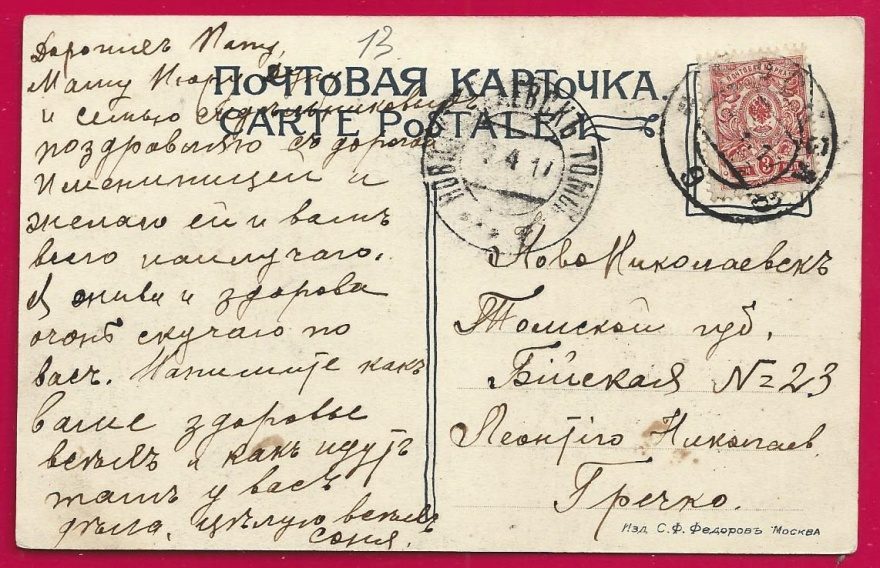 13
ПОЧТОВАЯ КАРТОЧКА.
CARTE POSTALE.
Папу,
Машу
и семью
поздравляю съ дорогой
Именинницей и
желаю ей и вамъ
всего наилучаго.
Я жива и здорова
очень скучаю по
васъ. Напишите какъ
ваше здоровье
всѣмъ и какъ идутъ
тамъ у васъ
дѣла. цѣлую всѣхъ
Соня.
4 17
НовоНиколаевскъ
Томской губ.
Бійская № 23
Леонтію Николаев.
Гречко.
Изд. С.Ф.Федоровъ Москва